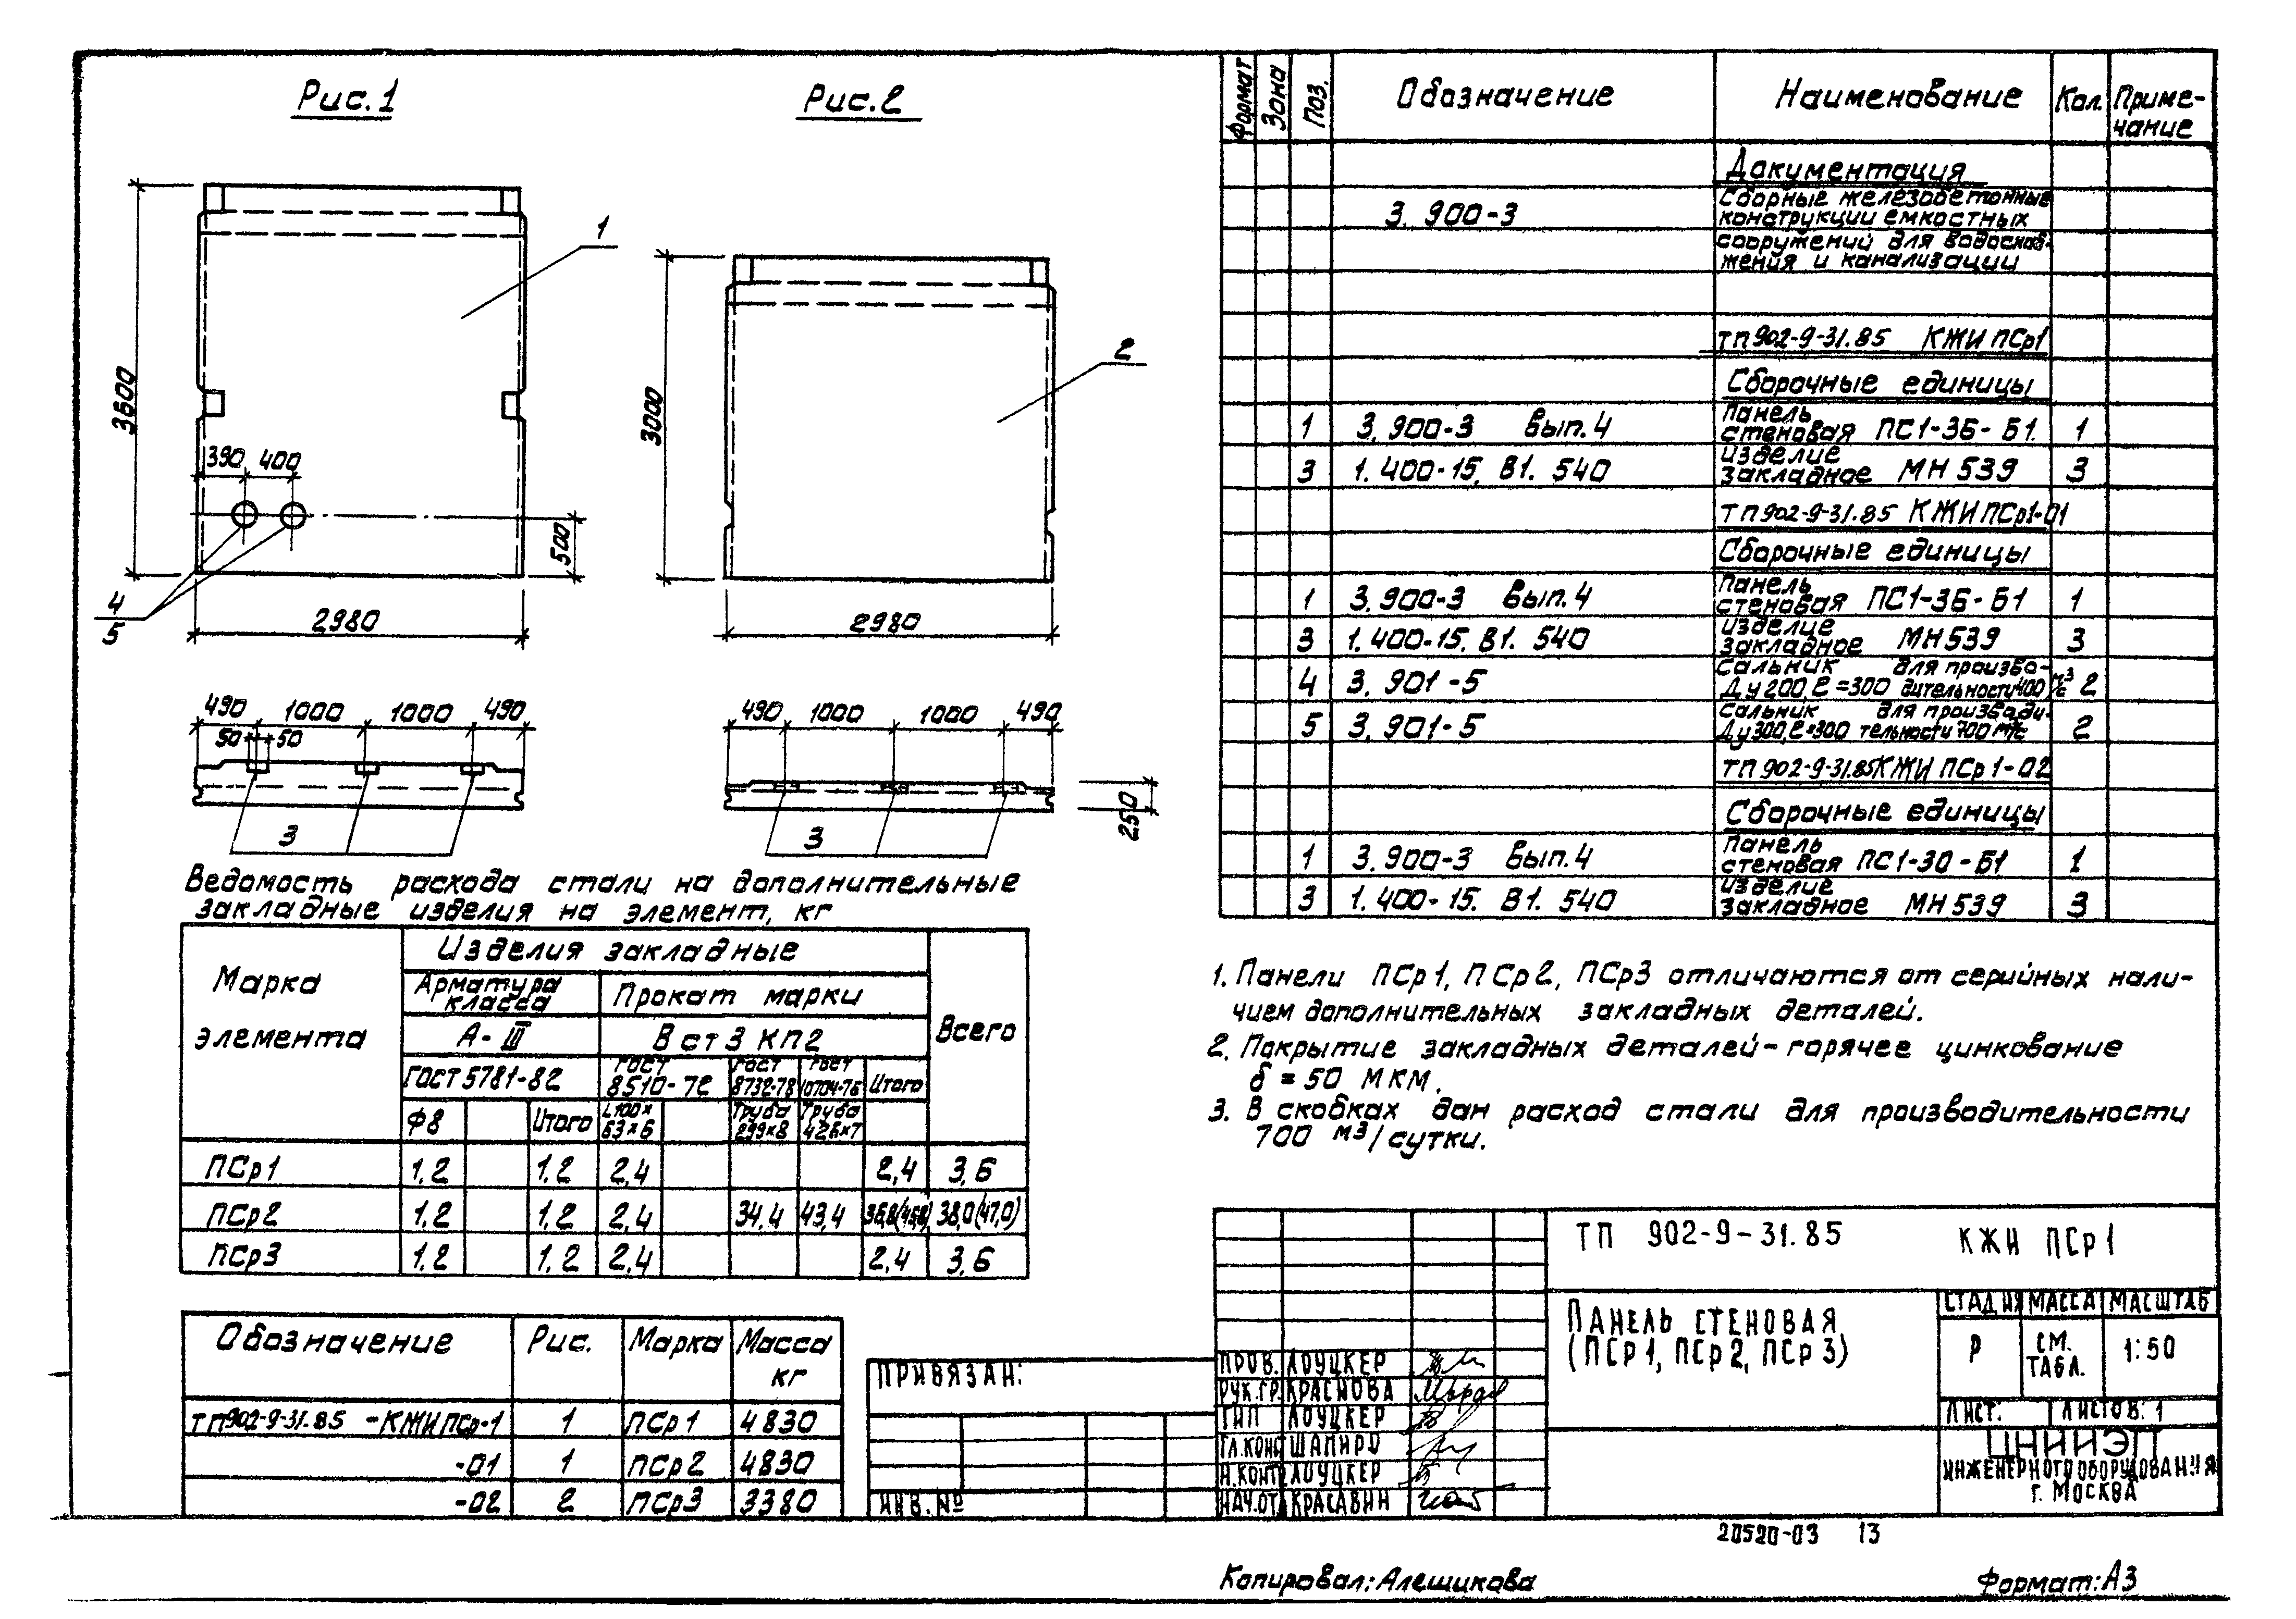 Рис.1
Рис.2
3600
390 400
500
2980
1
4
5
3000
2980
2
490 1000 1000 490
50 50
3
490 1000 1000 490
250
3
Ведомость расхода стали на дополнительные
закладные изделия на элемент, кг
Марка элемента
Изделия закладные
Всего
Арматура класса
Прокат марки
А-III
В ст 3 КП2
ГОСТ 5781-82
ГОСТ 8510-72
ГОСТ 8732-78
ГОСТ 10704-76
Итого
Ф8 Итого L100× 63×6 Труба 299×8 Труба 426×7
ПСр1 1,2 1,2 2,4 2,4 3,6
ПСр2 1,2 1,2 2,4 34,4 43,4 36,8(45,8) 38,0(47,0)
ПСр3 1,2 1,2 2,4 2,4 3,6
Обозначение Рис. Марка Масса кг
ТП902-9-31.85 -КЖИПСр-1 1 ПСр1 4830
-01 1 ПСр2 4830
-02 2 ПСр3 3380
Формат Зона Поз. Обозначение Наименование Кол. Приме-
чание
Документация
3.900-3 Сборные железобетонные
конструкции емкостных
сооружений для водоснаб-
жения и канализации
ТП902-9-31.85 КЖИ ПСр1
Сборочные единицы
1 3.900-3 Вып.4 Панель стеновая ПС1-36-Б1 1
3 1.400-15. В1. 540 Изделие закладное МН539 3
ТП902-9-31.85 КЖИ ПСр1-01
Сборочные единицы
1 3.900-3 Вып.4 Панель стеновая ПС1-36-Б1 1
3 1.400-15. В1. 540 Изделие закладное МН539 3
4 3.901-5 Сальник для произво-
Ду200, ℓ=300 дительности 400 м³/с 2
5 3.901-5 Сальник для производи-
Ду300, ℓ=300 тельности 700 м³/с 2
ТП902-9-31.85 КЖИ ПСр1-02
Сборочные единицы
1 3.900-3 Вып.4 Панель стеновая ПС1-30-Б1 1
3 1.400-15. В1. 540 Изделие закладное МН539 3
1. Панели ПСр1, ПСр2, ПСр3 отличаются от серийных нали-
чием дополнительных закладных деталей.
2. Покрытие закладных деталей-горячее цинкование
δ = 50 МКМ.
3. В скобках дан расход стали для производительности
700 м³/сутки.
ТП 902-9-31.85 КЖИ ПСр1
ПАНЕЛЬ СТЕНОВАЯ
(ПСр1, ПСр2, ПСр3)
СТАДИЯ МАССА МАСШТАБ
Р СМ. ТАБЛ. 1:50
ЛИСТ: ЛИСТОВ: 1
ЦНИИЭП
ИНЖЕНЕРНОГО ОБОРУДОВАНИЯ
Г. МОСКВА
ПРИВЯЗАН:
ИНВ.№
ПРОВ. ЛОУЦКЕР
РУК.ГР. КРАСНОВА
ГИП ЛОУЦКЕР
ГЛ.КОНС ШАПИРО
Н.КОНТР ЛОУЦКЕР
НАЧ.ОТ. КРАСАВИН
20520-03 13
Копировал: Алешикова
Формат: А3